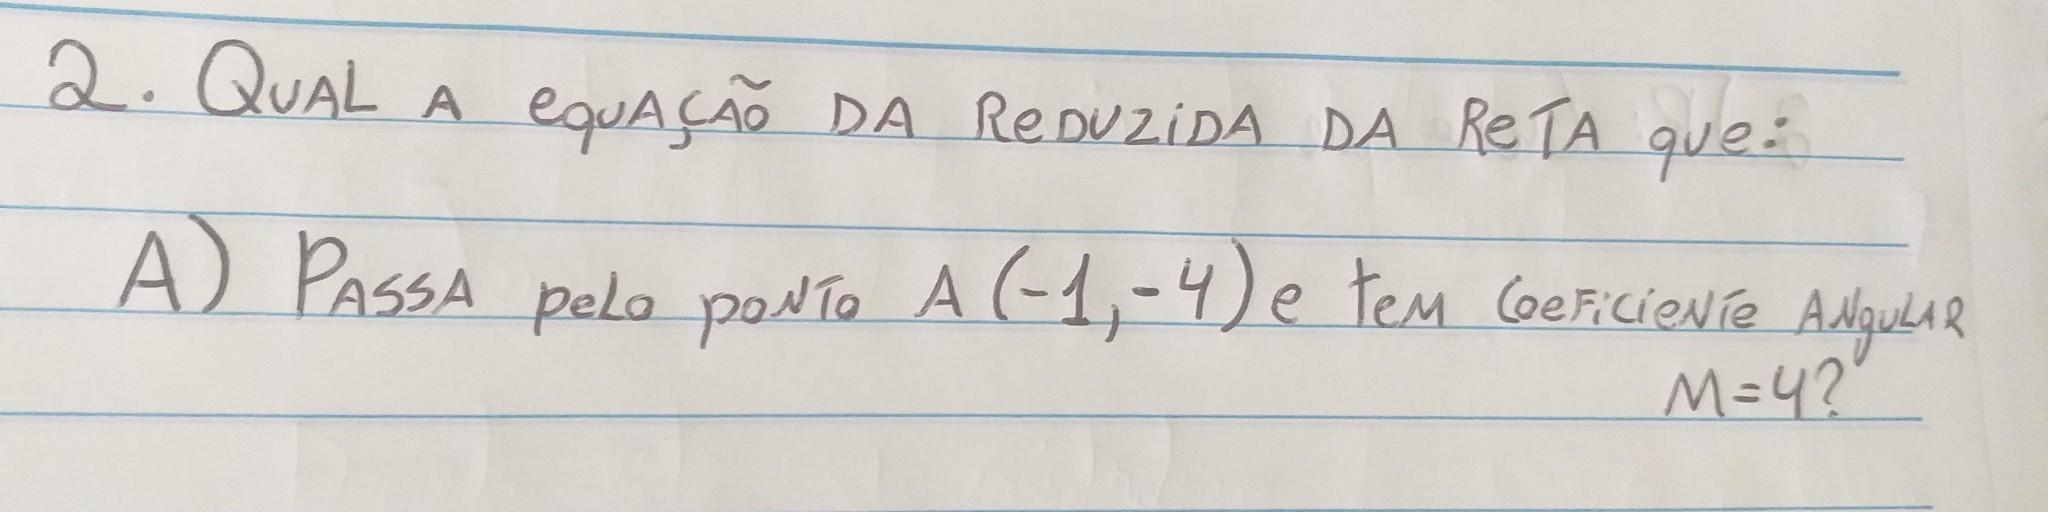 2. QUAL A equAÇÃO DA ReDUZiDA DA ReTA que:
A) PASSA peLo poNTo A (-1,-4) e teM CoeFiCieNTe ANguLAR
M=4?